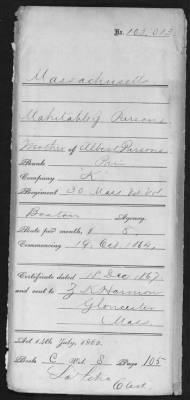 No. 102,013
Massachusetts
Mahitable J. Parsons
Mother of Albert Parsons
Rank Pri
Company K
Regiment 30 Mass Vols
Boston Agency.
Rate per month, $ 8
Commencing 19 Oct 1864
Certificate dated 18 Dec 1867
and sent to Z K Harmon
Gloucester
Mass.
Act 14th July, 1862.
Book C Vol. 3 Page 105
Clerk.